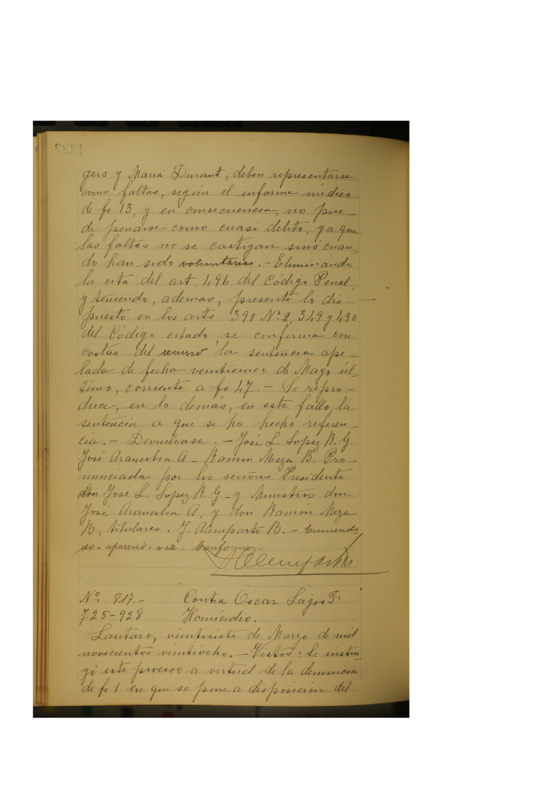 gers y María Durant, deben representarse
como faltas, según el informe médico
de fs 13, y en consecuencia, no pue-
de penarse como cuasi delito, ya que
las faltas no se castigan sinó cuan-
do han sido voluntarias.- Eliminando
la cita del art. 496 del Código Penal,
y teniendo, ademas, presente lo dis-
puesto en los arts 391 Nº 2, 349 y 490
del Código citado, se confirma con
costas del recurso, la sentencia ape-
lada de fecha veintinueve de Mayo úl
timo, corriente a fs 47.- Se repro-
duce, en lo demás, en este fallo, la
sentencia a que se ha hecho referen-
cia.- Devuélvase.- José L. Lopez R. G.
José Aramberia A - Ramon Meza B. Pro-
nunciada por los señores Presidente
don José L. Lopez R. G - y Ministros don
José Aramberia A, y don Ramón Meza
B, titulares. J. Alemparte B.-
Conforme-
Nº 827.- Contra Oscar Lagos F.
725-928 Homicidio.
Lautaro, veintisiete de Marzo de mil
novecientos veintiocho.- Vistos: Se instru
yó este proceso a virtud de la denuncia
de fs 1 en que se pone a disposicion del